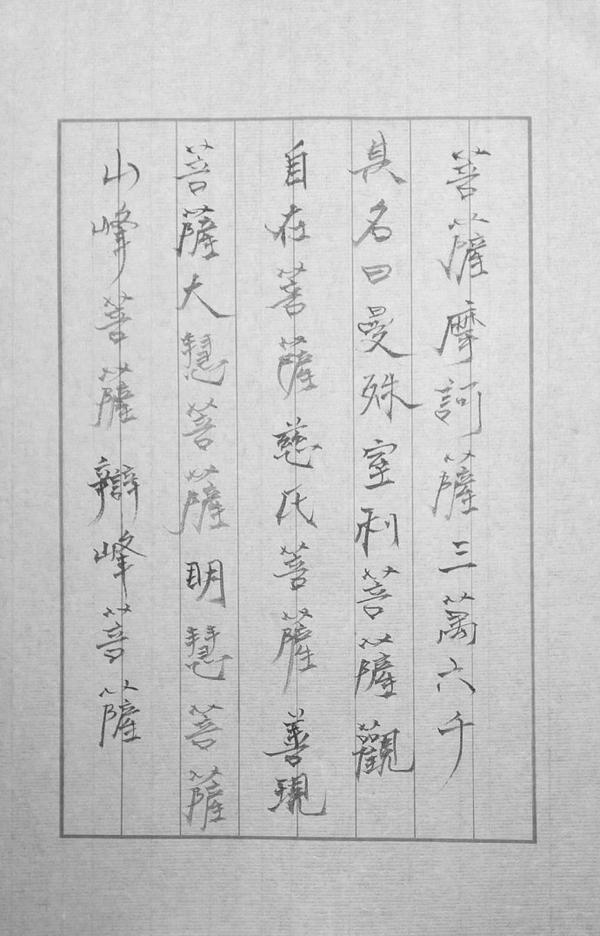 菩薩摩訶薩三萬六千
具名曰曼殊室利菩薩觀
自在菩薩慈氏菩薩善現
菩薩大慧菩薩明慧菩薩
山峰菩薩辯峰菩薩